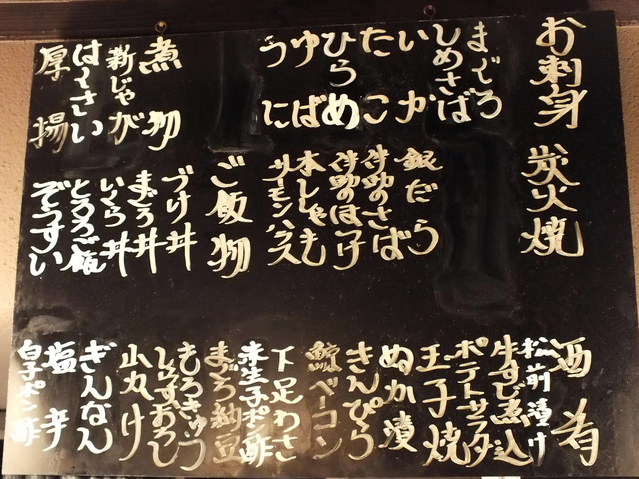 お刺身
まぐろ
しめさば
いか
たこ
ひらめ
ゆば
うに
煮物
新じゃが
はくさい
厚揚
炭火焼
銀だら
伴助のさば
伴助のほっけ
本ししゃも
サーモンハラス
ご飯物
づけ丼
まぐろ丼
いくら丼
とろろご飯
ぞうすい
酒肴
松前漬け
牛すじ煮込
ポテトサラダ
玉子焼
ぬか漬
きんぴら
鯨ベーコン
下足わさ
赤生子ポン酢
まぐろ納豆
もろきゅう
しらすおろし
山かけ
ぎんなん
塩辛
白子ポン酢